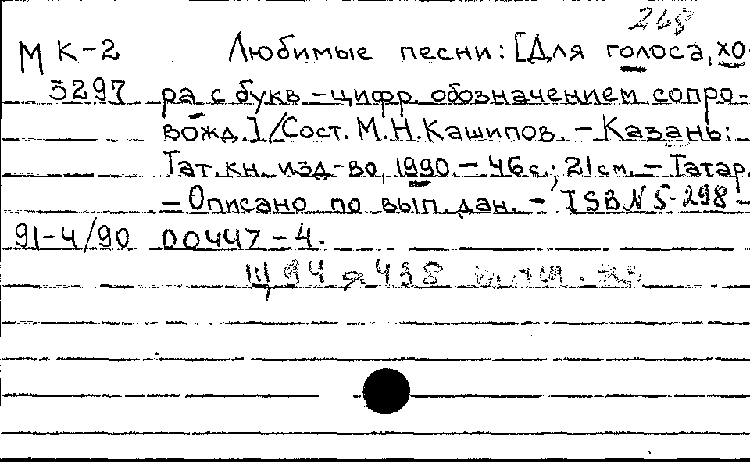 268
МК-2 Любимые песни: [Для голоса, хо-
3297 ра с букв.-цифр. обозначением сопро-
вожд.] /Сост. М.Н.Кашипов. - Казань:
Тат. кн. изд-во, 1990. - 46с.; 21см. - Татар.
- Описано по вып. дан. - ISBN 5-298-
91-4/90 00447-4.
Щ94 я438